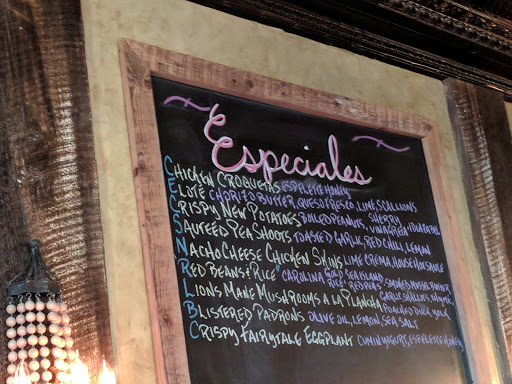 Especiales
CHICKEN CROQUETAS ESPELETTE HONEY
ELOTE CHORIZO BUTTER, QUESO FRESCO, LIME, SCALLIONS
CRISPY NEW POTATOES BOILED PEANUTS, SHERRY VINAGRETTE
SAUTEED PEA SHOOTS TOASTED GARLIC, RED CHILI, LEMON
NACHO CHEESE CHICKEN SKINS LIME CREMA HOUSE HOT SAUCE
"RED BEANS & RICE" CAROLINA GOLD SEA ISLAND RICE, RED PEAS, SMOKED
LIONS MANE MUSHROOMS A LA PLANCHA GARLIC, SHALLOTS, POACHED DUCK YOLK
BLISTERED PADRONS OLIVE OIL, LEMON SEA SALT
CRISPY FAIRYTALE EGGPLANT CUMIN YOGURT, ESPELETTE HONEY